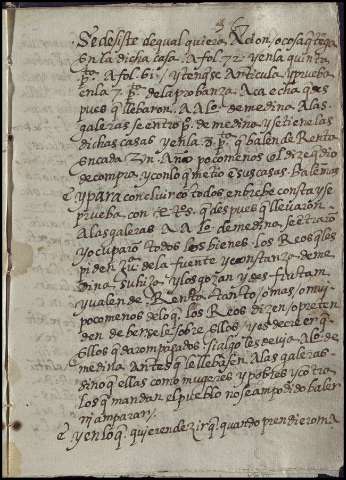 Se desiste de qual quiera Acion, o cosa q̃ tẽga
en la dicha casa. A fol. 72 y en la quinta
pta A fol. 61. / y ten q̃ se Articula y prueba
en la 7 pta de la probanza Aca echa q̃ des
pues q̃ llebaron A Alo de medina A las
galeras se entro po de medina y se tiene las
dichas casas y en la pta q̃ balen de Renta
en cada Un Año poco menos
de conpra y con lo q̃ metio en sus casas
y para concluir cõ todos en brebe consta y se
prueba con q̃ despues q̃ llevaron
A las galeras A Alo de medina se entraro
y ocuparõ todos los bienes los Reos q̃ les
piden Jua de la fuente y costanza de me
dina su hija y los gozan y des frutan
y valen de Renta tanto, o mas, o muy
poco menos de lo q̃ los Reos dizen, o preten
den de berseles sobre ellos / y es decir q̃
ellos q̃daron pagados si algo les devia Alo de
medina Antes q̃ le llebasen A las galeras
dino q̃ ellas como mugeres y pobres y cõtra
los q̃ mandan el pueblo no se an podido baler
ni amparar /
y en lo q̃ quieren dezir q̃ quando prendieron A